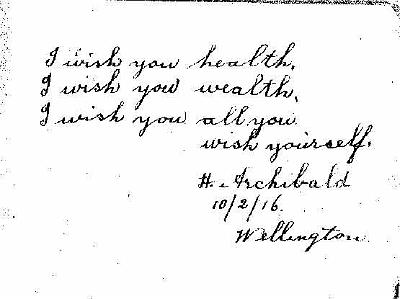 I wish you health,
I wish you wealth,
I wish you all you
wish yourself.
H. Archibald
10/2/16.
Wellington